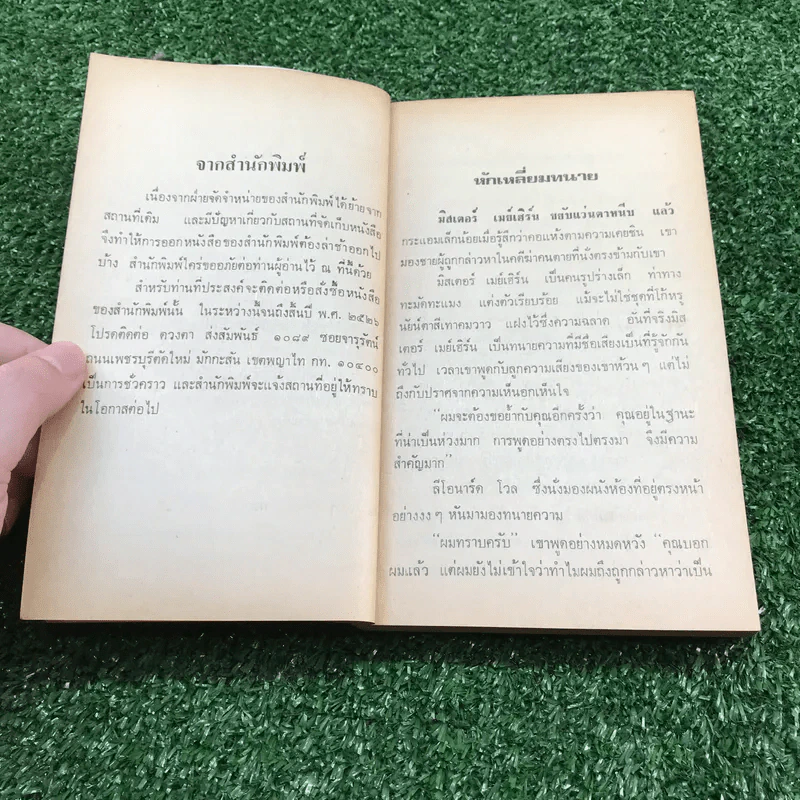 จากสำนักพิมพ์
เนื่องจากฝ่ายจัดจำหน่ายของสำนักพิมพ์ได้ย้ายจาก
สถานที่เดิม และมีปัญหาเกี่ยวกับสถานที่จัดเก็บหนังสือ
จึงทำให้การออกหนังสือของสำนักพิมพ์ต้องล่าช้าออกไป
บ้าง สำนักพิมพ์ใคร่ขออภัยต่อท่านผู้อ่านไว้ ณ ที่นี้ด้วย
สำหรับท่านที่ประสงค์จะติดต่อหรือสั่งซื้อหนังสือ
ของสำนักพิมพ์นั้น ในระหว่างนี้จนถึงสิ้นปี พ.ศ. ๒๕๒๖
โปรดติดต่อ ดวงตา ส่งสัมพันธ์ ๑๐๘๙ ซอยจารุรัตน์
ถนนเพชรบุรีตัดใหม่ มักกะสัน เขตพญาไท กท. ๑๐๔๐๐
เป็นการชั่วคราว และสำนักพิมพ์จะแจ้งสถานที่อยู่ให้ทราบ
ในโอกาสต่อไป
หักเหลี่ยมทนาย
มิสเตอร์ เมย์เฮิร์น ขยับแว่นตาหนีบ แล้ว
กระแอมเล็กน้อยเมื่อรู้สึกว่าคอแห้งตามความเคยชิน เขา
มองชายผู้ถูกกล่าวหาในคดีฆ่าคนตายที่นั่งตรงข้ามกับเขา
มิสเตอร์ เมย์เฮิร์น เป็นคนรูปร่างเล็ก ท่าทาง
ทะมัดทะแมง แต่งตัวเรียบร้อย แม้จะไม่ใช่ชุดที่โก้หรู
นัยน์ตาสีเทาคมวาว แฝงไว้ซึ่งความฉลาด อันที่จริงมิส
เตอร์ เมย์เฮิร์น เป็นทนายความที่มีชื่อเสียงเป็นที่รู้จักกัน
ทั่วไป เวลาเขาพูดกับลูกความเสียงของเขาห้วน ๆ แต่ไม่
ถึงกับปราศจากความเห็นอกเห็นใจ
"ผมจะต้องขอย้ำกับคุณอีกครั้งว่า คุณอยู่ในฐานะ
ที่น่าเป็นห่วงมาก การพูดอย่างตรงไปตรงมา จึงมีความ
สำคัญมาก"
ลีโอนาร์ด โวล ซึ่งนั่งมองผนังห้องที่อยู่ตรงหน้า
อย่างงง ๆ หันมามองทนายความ
"ผมทราบครับ" เขาพูดอย่างหมดหวัง "คุณบอก
ผมแล้ว แต่ผมยังไม่เข้าใจว่าทำไมผมถึงถูกกล่าวหาว่าเป็น